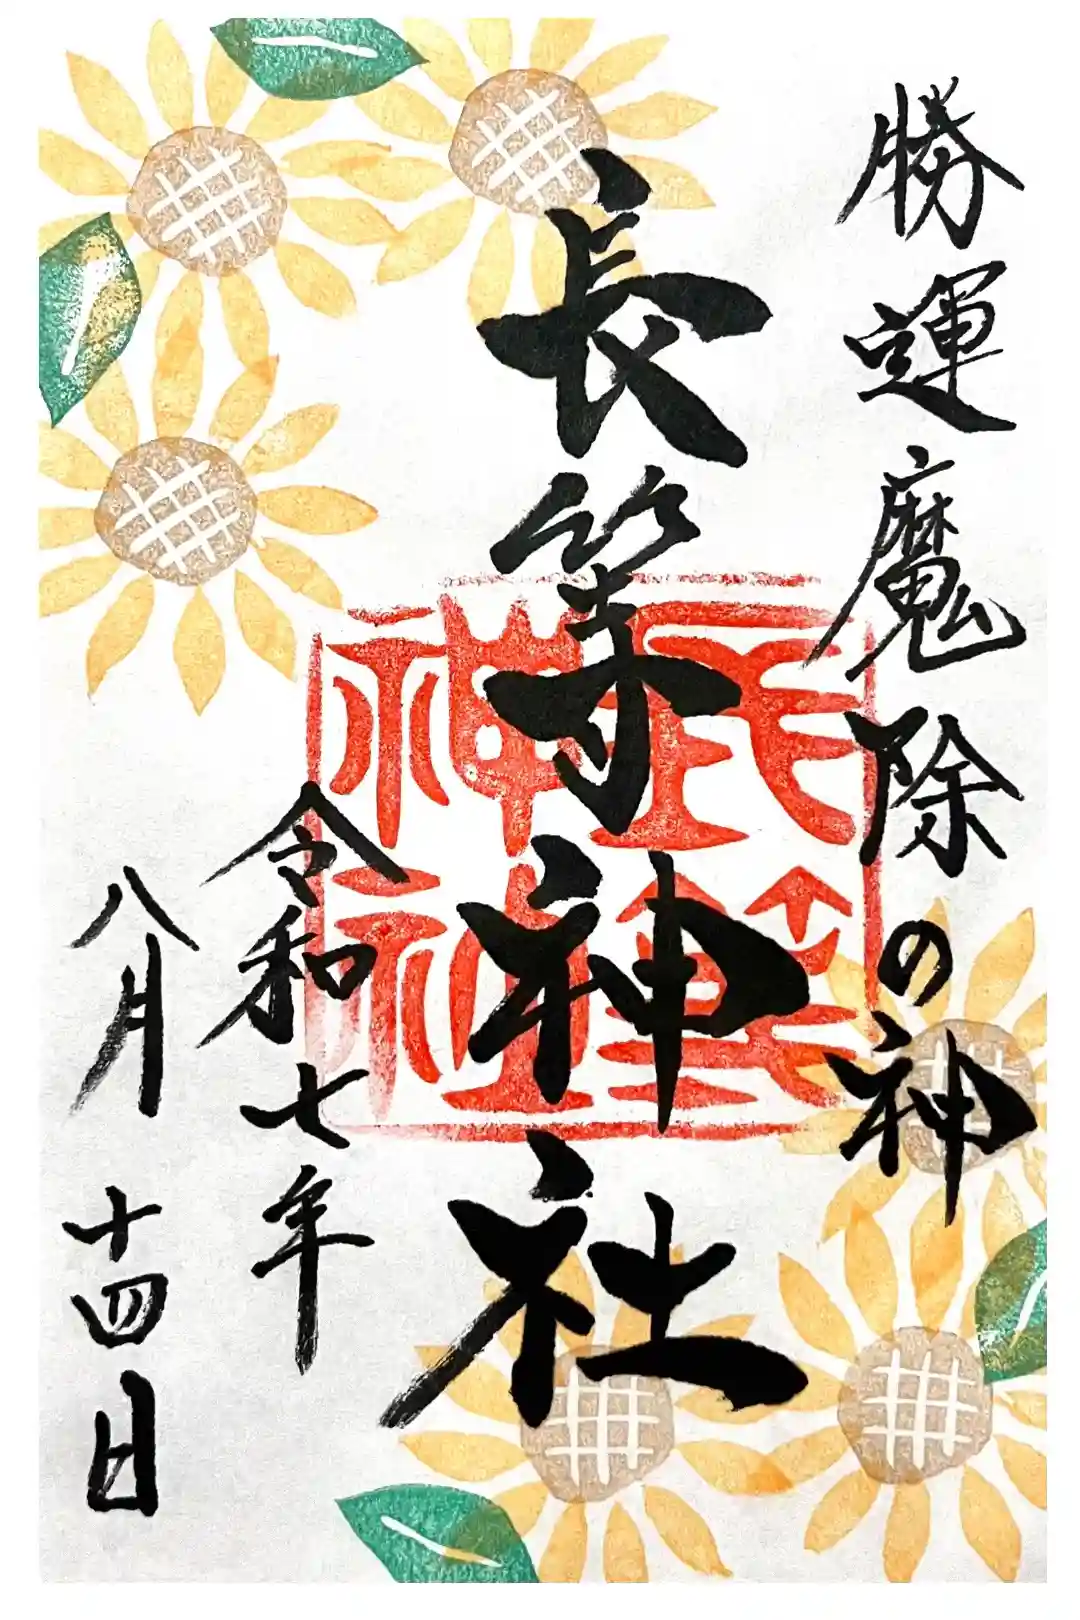 勝運魔除の神
長等神社
長等
神社
令和七年
八月十四日